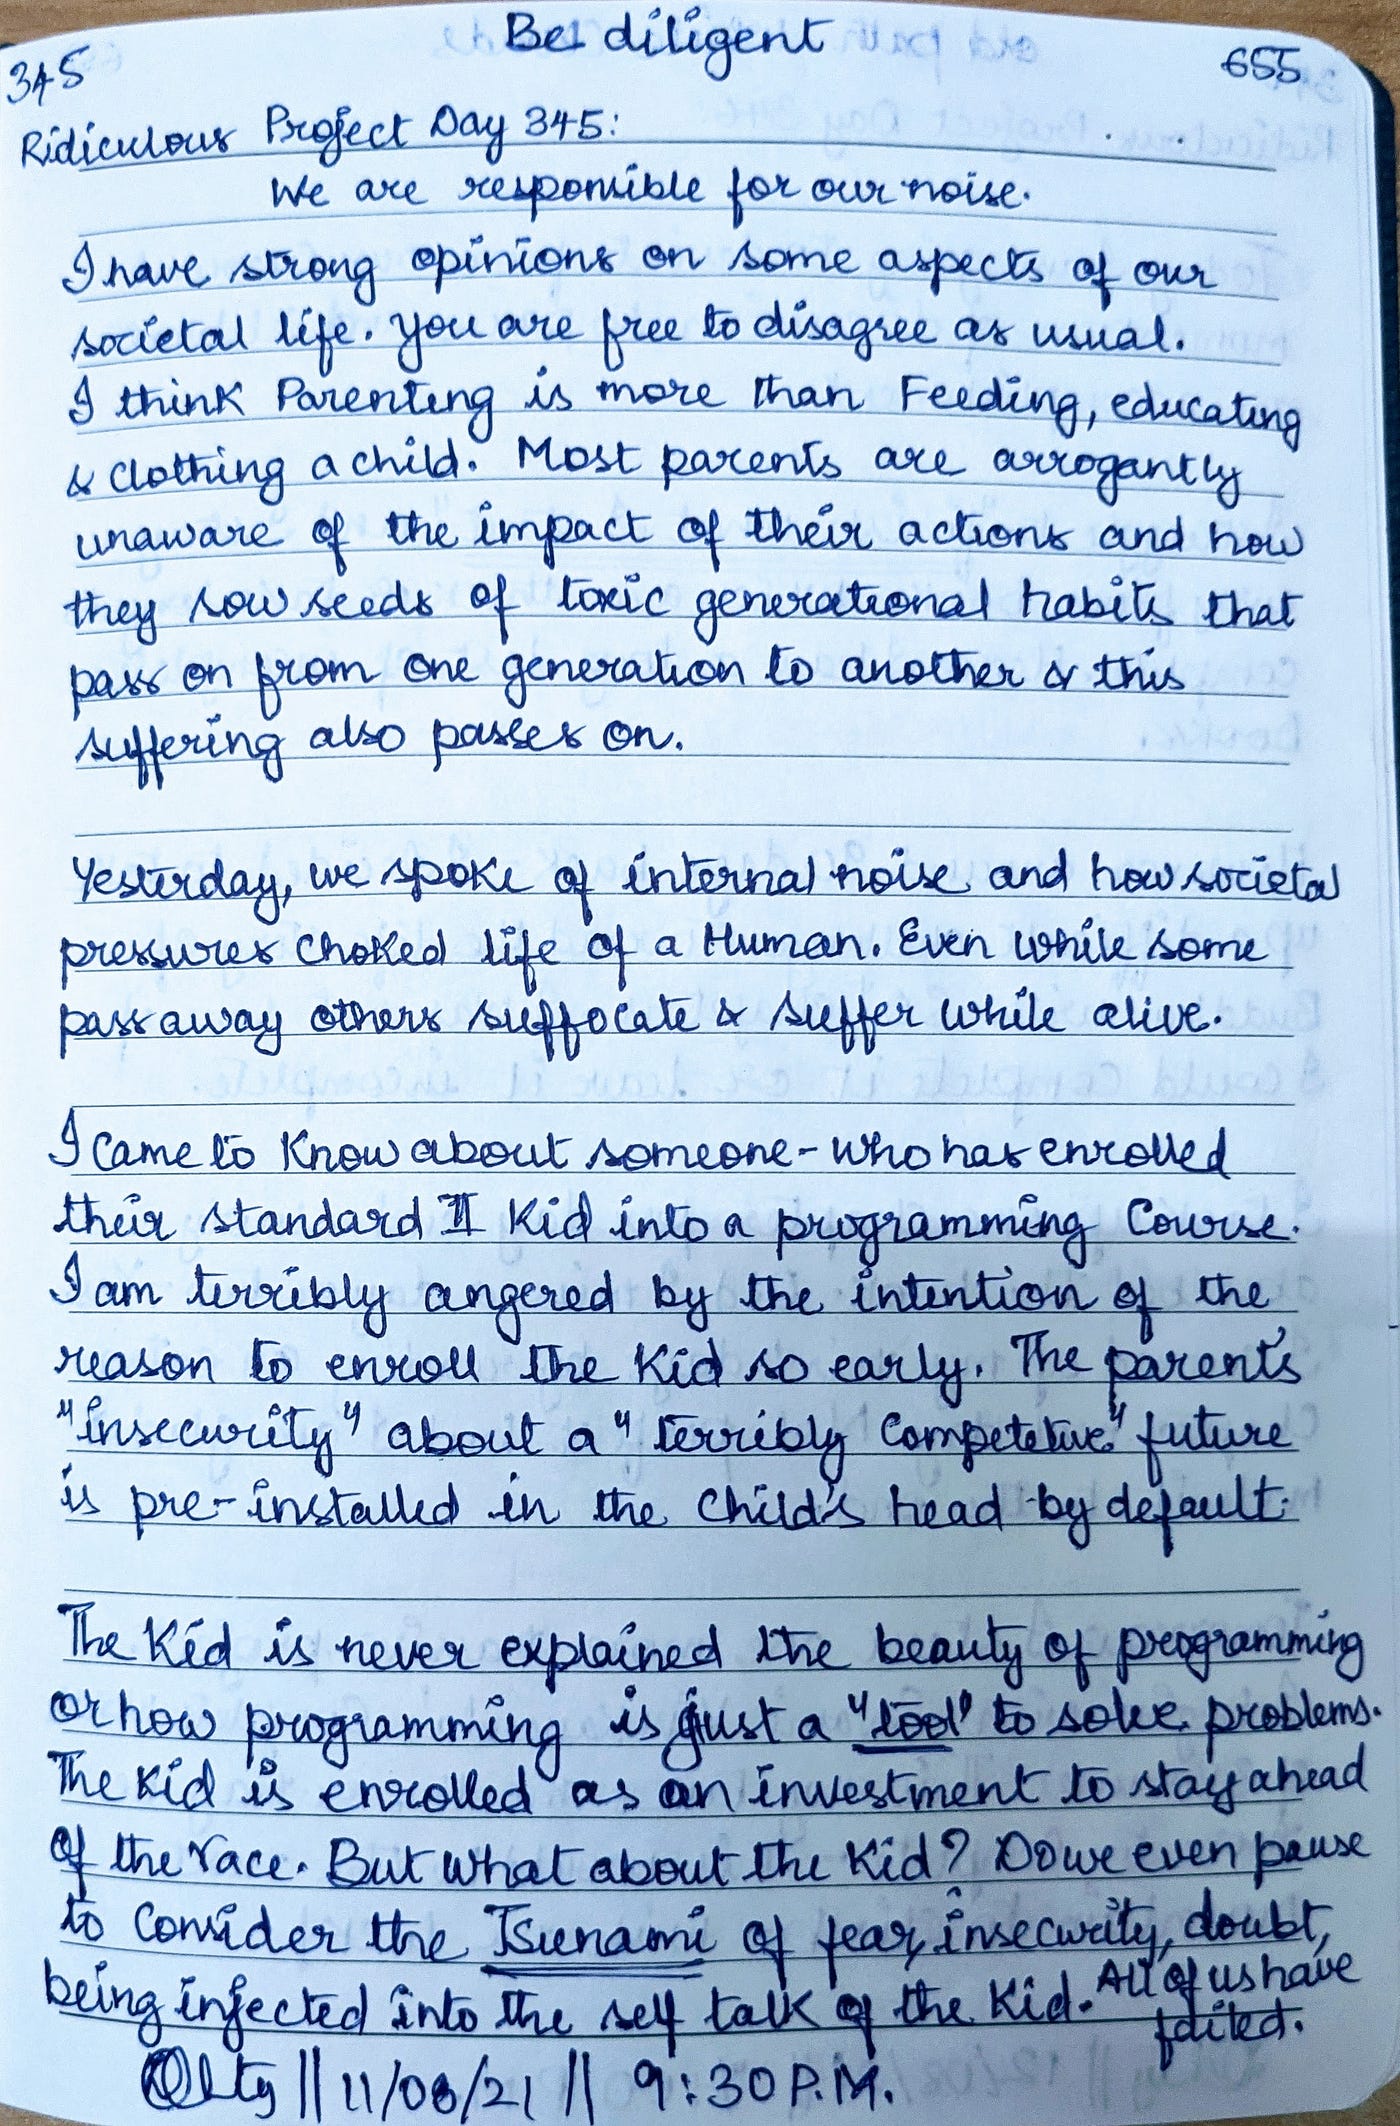 Be diligent
345
655
Ridiculous Project Day 345:
We are responsible for our noise.
I have strong opinions on some aspects of our
societal life. You are free to disagree as usual.
I think Parenting is more than Feeding, educating
& clothing a child. Most parents are arrogantly
unaware of the impact of their actions and how
they sow seeds of toxic generational habits that
pass on from one generation to another & this
suffering also passes on.
Yesterday, we spoke of internal noise and how societal
pressures choked life of a Human. Even while some
pass away others suffocate & suffer while alive.
I came to know about someone - who has enrolled
their standard II Kid into a programming Course.
I am terribly angered by the intention of the
reason to enroll the Kid so early. The parent's
"insecurity" about a "terribly Competetive" future
is pre-installed in the child's head by default.
The Kid is never explained the beauty of programming
or how programming is just a "tool" to solve problems.
The Kid is enrolled as an investment to stay ahead
of the race. But what about the Kid? Do we even pause
to consider the Tsunami of fear, insecurity, doubt,
being injected into the self talk of the Kid. All of us have
failed.
|| 11/08/21 || 9:30 P.M.